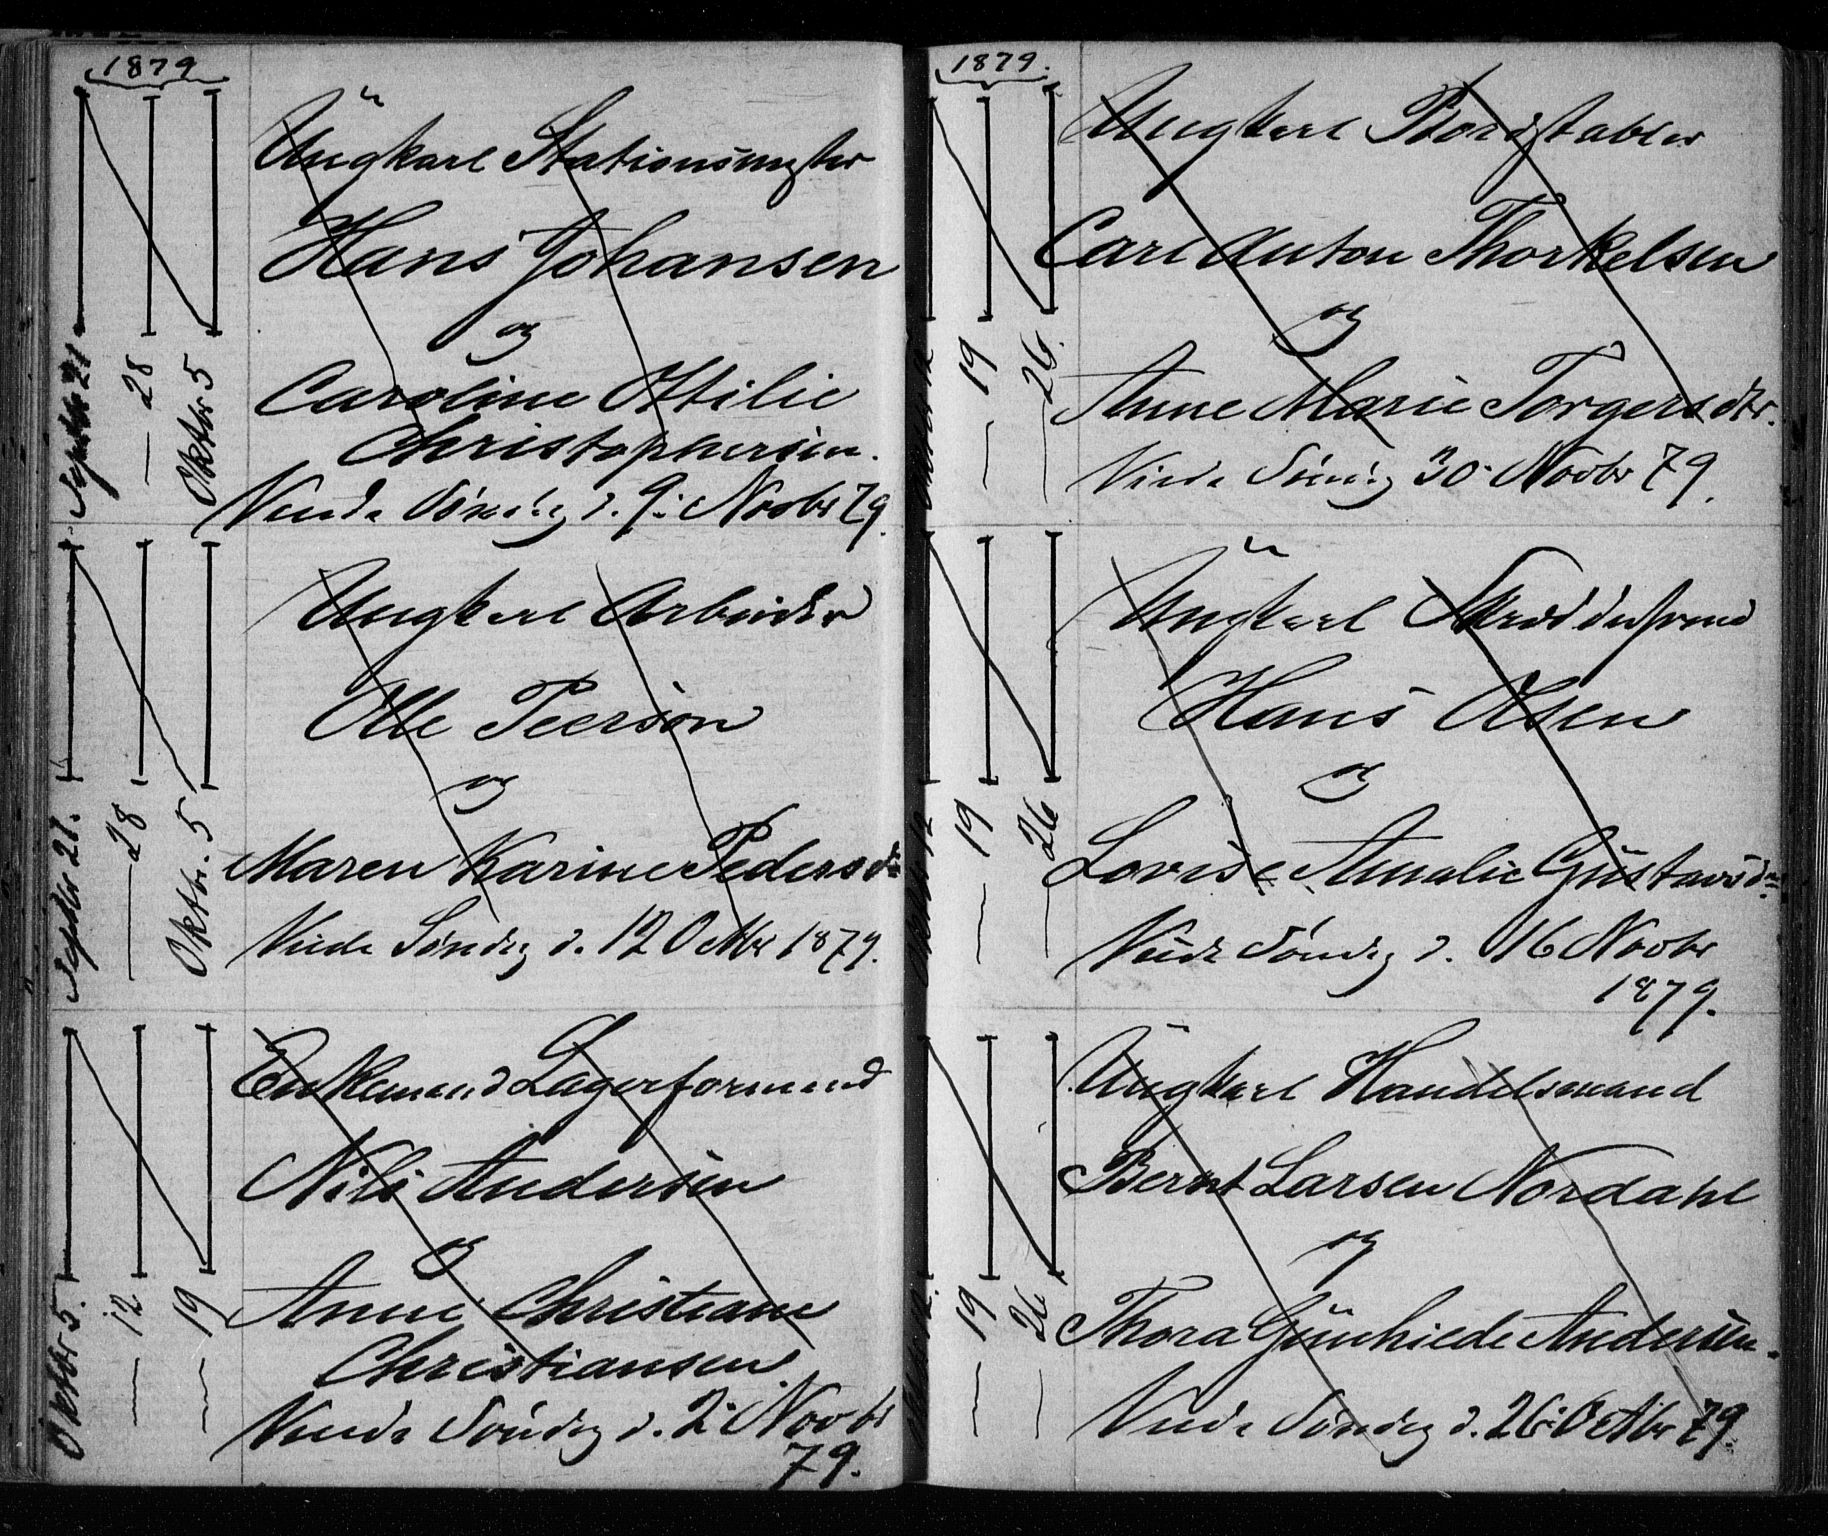 1879
Septbr 21
— 28
Oktbr 5
Ungkarl Stationsmester
Hans Johansen
og
Caroline Ottilie
Christophersen.
Viede Søndag d. 9. Novbr 79.
Septbr 21.
— 28
Oktbr. 5
Ungkarl Arbeider
Olle Peerson
og
Maren Karine Pedersdr
Viede Søndag d. 12 Octbr 1879.
Oktbr 5.
— 12
— 19
Enkemand Lagerformand
Nils Andersen
og
Anne Christiane
Christiansen.
Viede Søndag d. 2. Novbr
79.
1879.
Oktbr 12
— 19
— 26.
Ungkarl Bordstabler
Carl Anton Thorkelsen
og
Anne Marie Torgersdtr.
Viede Søndag 30. Novbr 79.
Oktbr 12
— 19
— 26
Ungkarl Skræddersvend
Hans Olsen
og
Lovise Amalie Gustavsdr
Viede Søndag d. 16 Novbr
1879.
Oktbr 12.
— 19
— 26
Ungkarl Handelsmand
Bernt Larsen Nordahl
og
Thora Gunhilde Andersen.
Viede Søndag d. 26. Octbr 79.